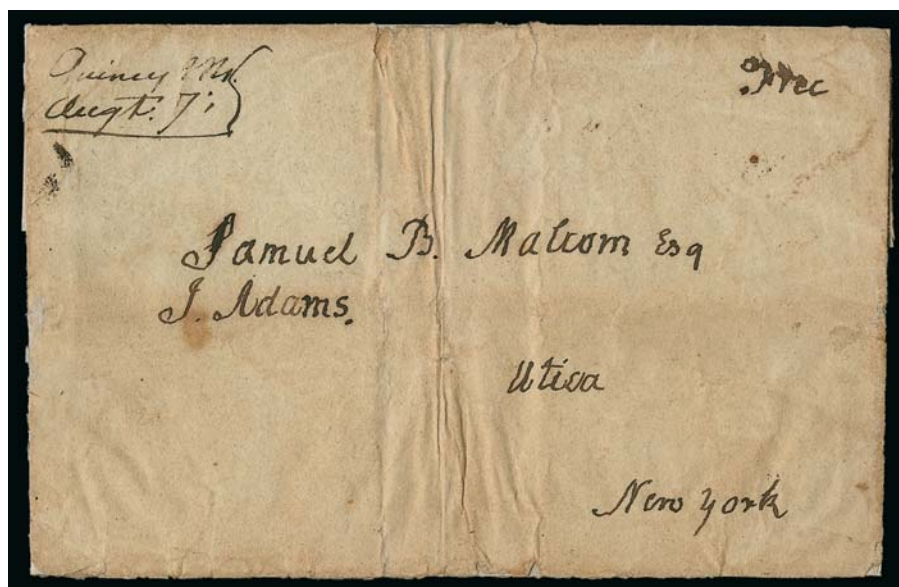 Quincy Ms.
Augt. 7;
Free
Samuel B. Malcom Esq
J. Adams.
Utica
New york